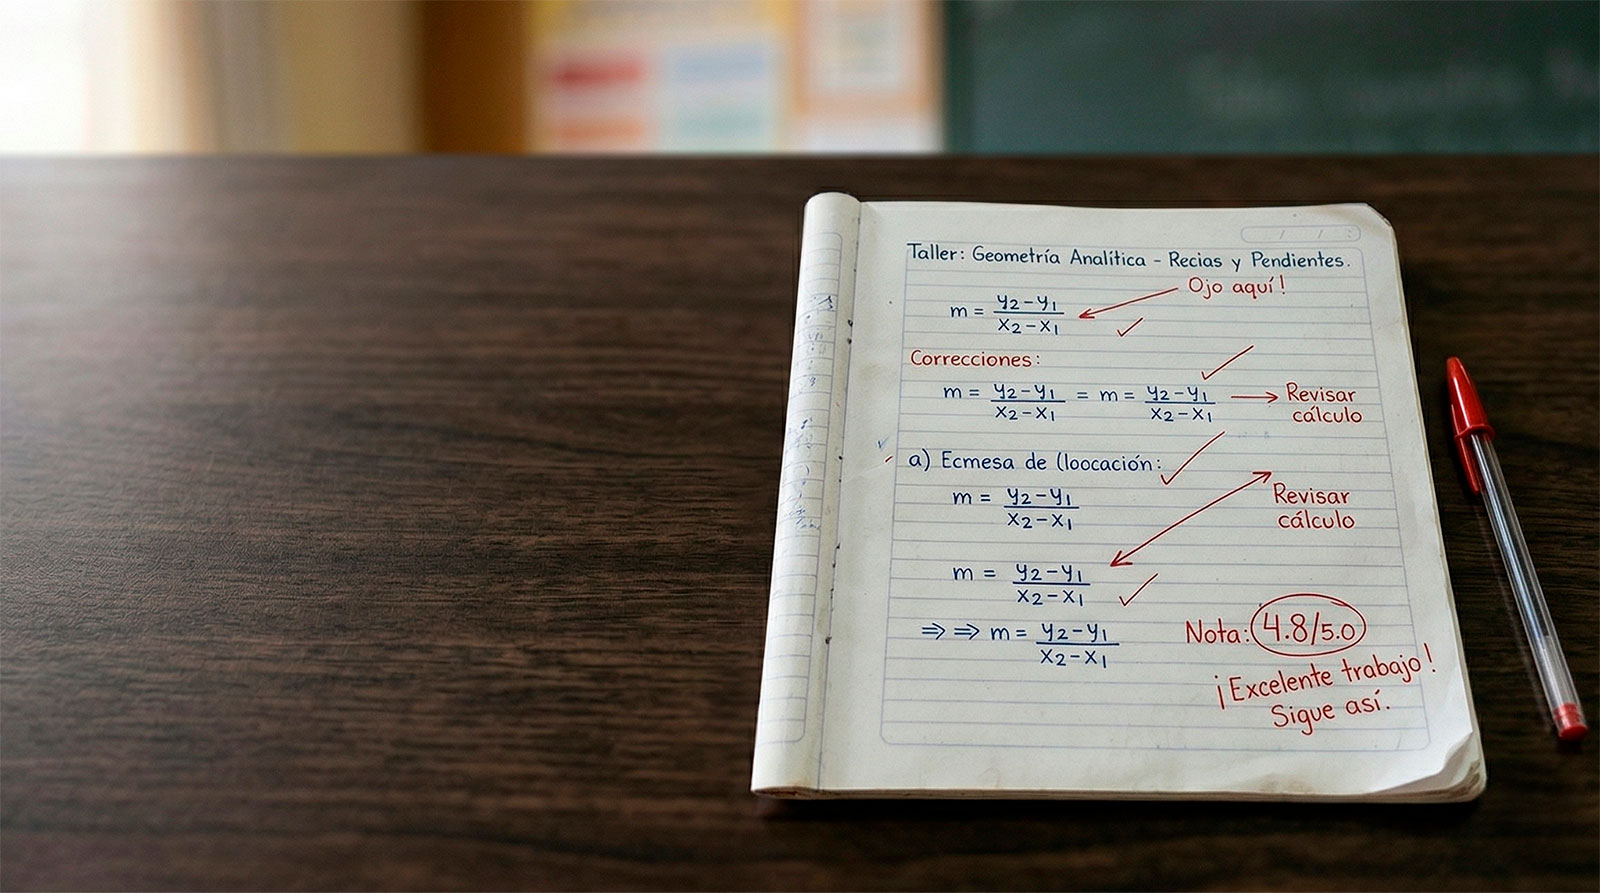 Taller: Geometría Analítica - Recias y Pendientes.
Ojo aquí!
m = y₂ - y₁ / x₂ - x₁
Correcciones:
m = y₂ - y₁ / x₂ - x₁ = m = y₂ - y₁ / x₂ - x₁ → Revisar cálculo
a) Ecmesa de (loocación:
m = y₂ - y₁ / x₂ - x₁
Revisar
cálculo
m = y₂ - y₁ / x₂ - x₁
⇒ ⇒ m = y₂ - y₁ / x₂ - x₁
Nota: 4.8/5.0
¡Excelente trabajo!
Sigue así.